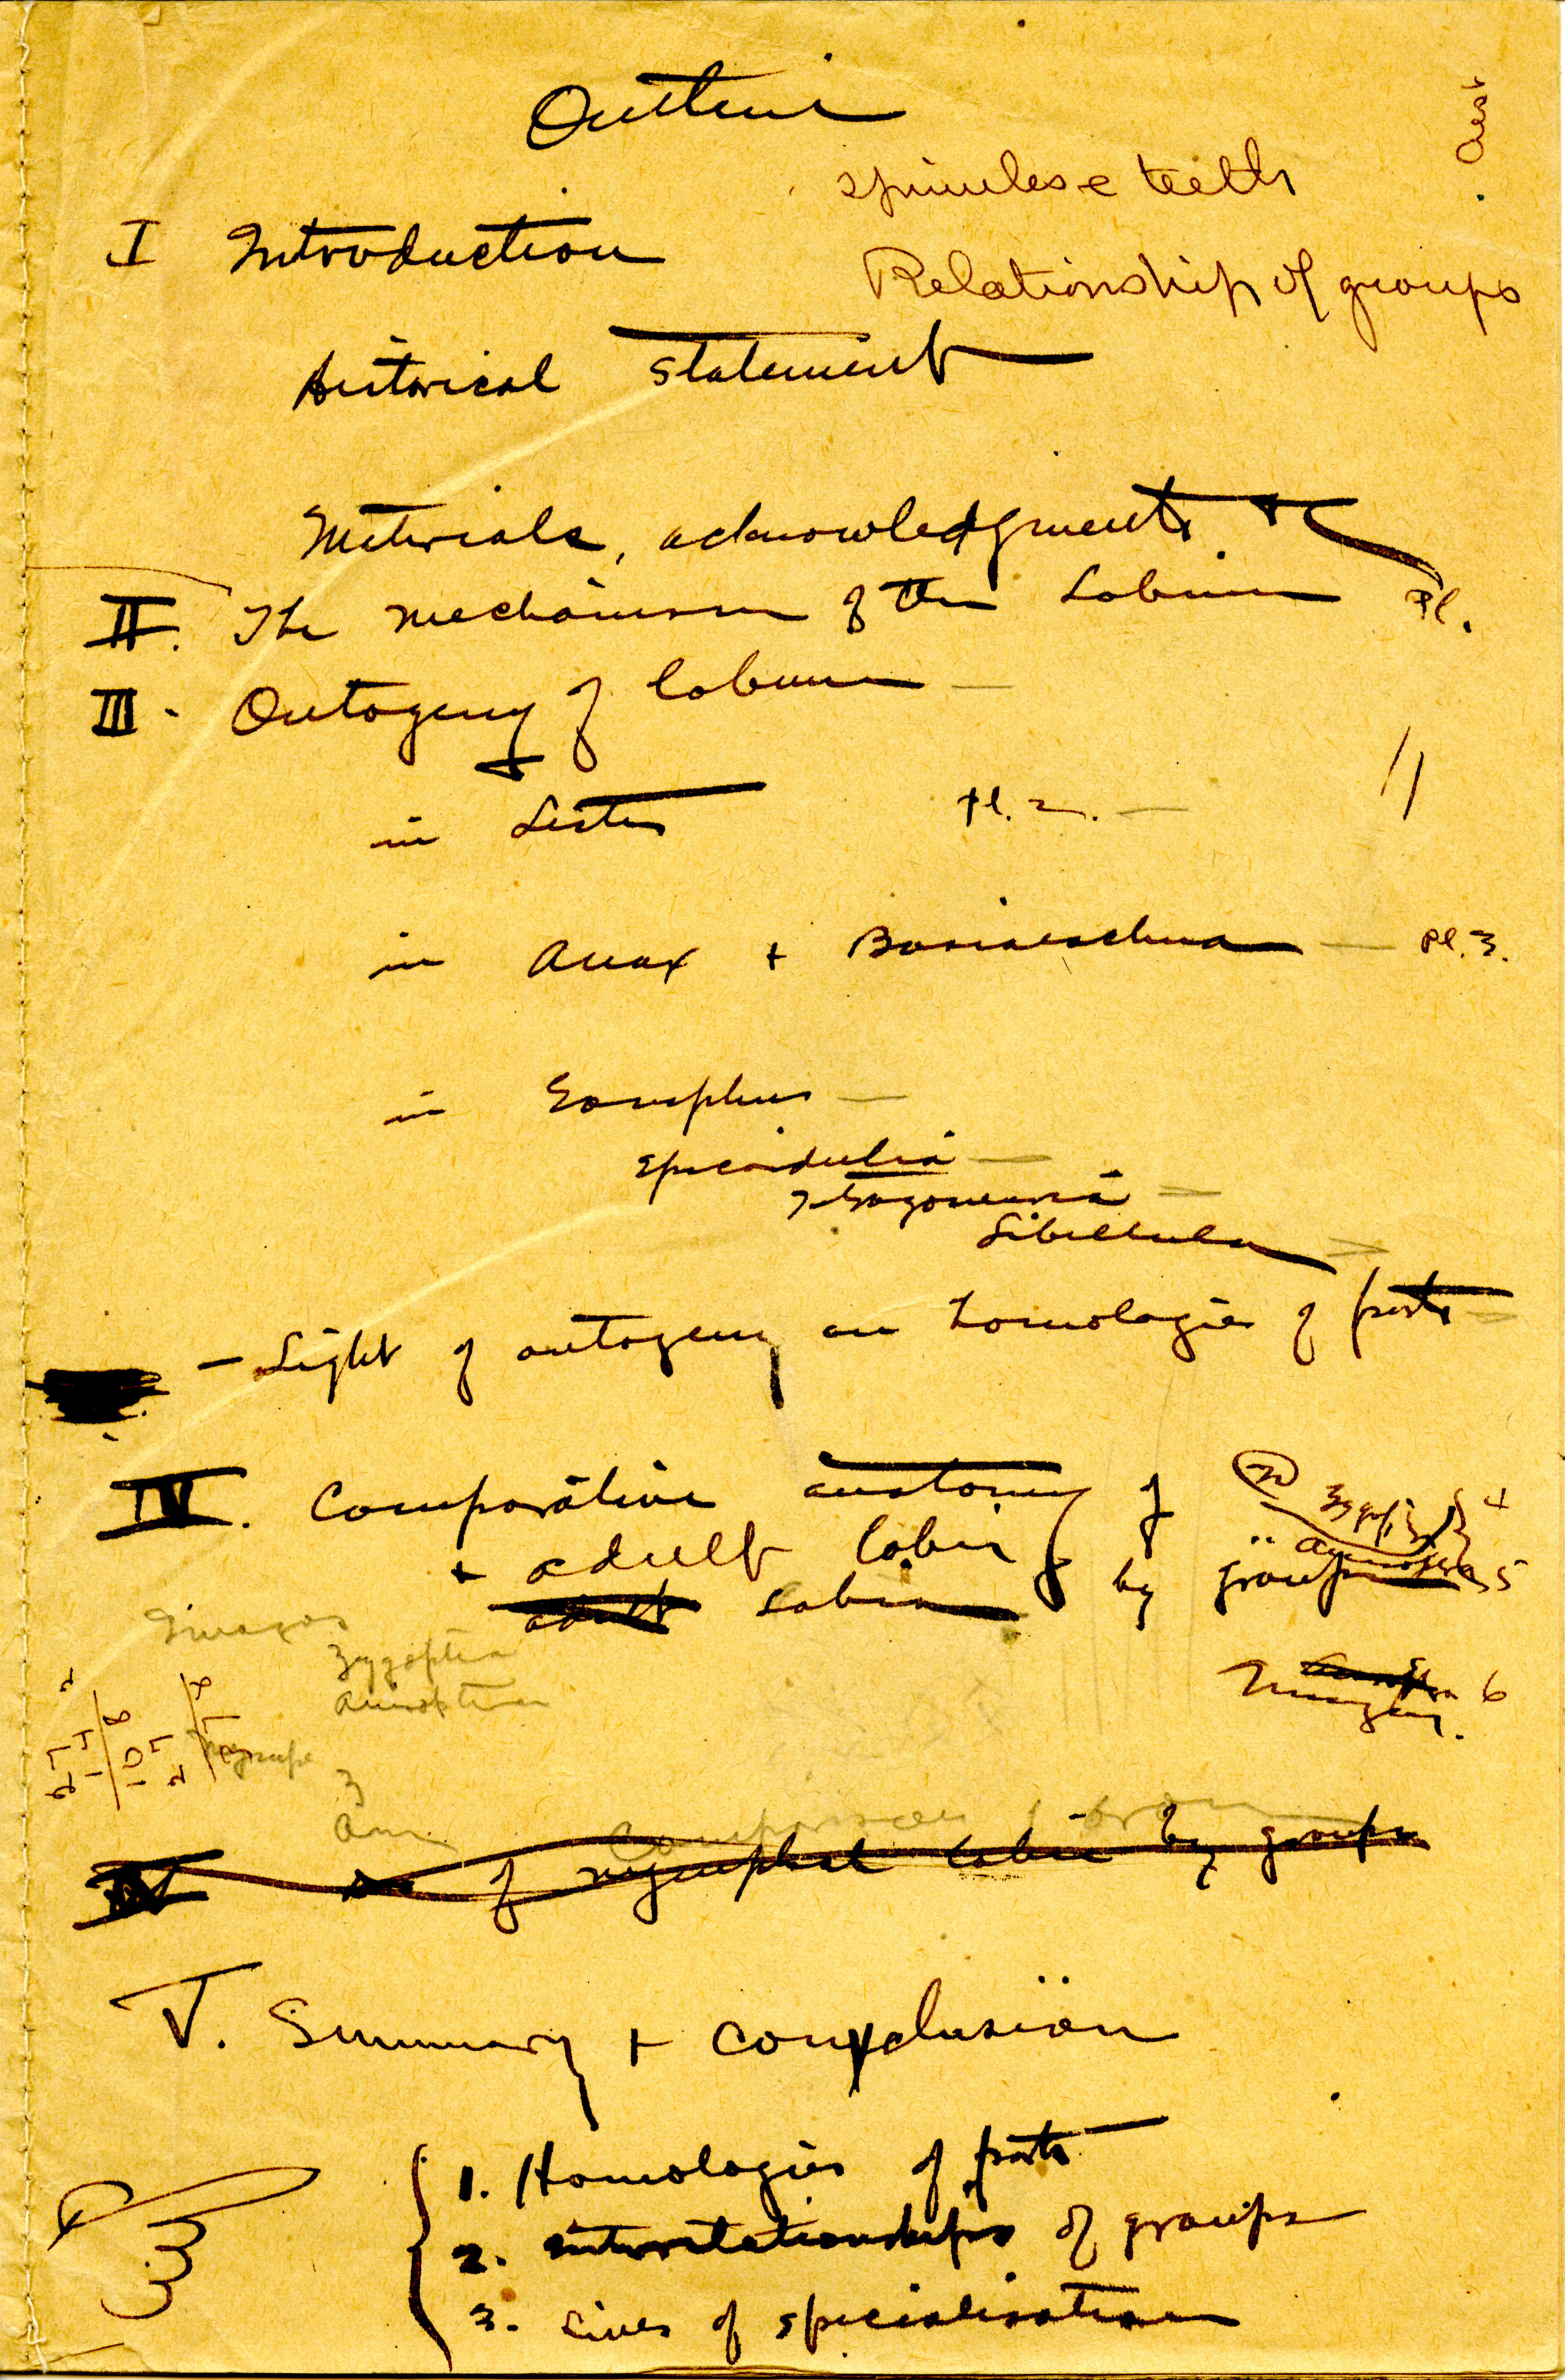 Outline
spinules & teeth
I Introduction
Relationship of groups
Historical Statement
Materials, acknowledgments &c
II. The mechanism of the Labium Pl.
III - Ontogeny of labium —
in Lestes Pl. 2. —
in Anax + Basiaeschna — Pl. 3.
in Gomphus —
Epicordulia —
Tetragoneuria —
Libellula —
— Light of ontogeny on homologies of parts —
IV. Comparative anatomy of
+ adult labia
adult Labia by groups
Zygop. 4
Anisoptera 5
Imagos
Zygoptera
Anisoptera
6
nymphs
Z
An
Comparison
IV of nymphal labia by groups
V. Summary + conclusion
1. Homologies of parts
2. interrelationships of groups
3. Lines of specialisation